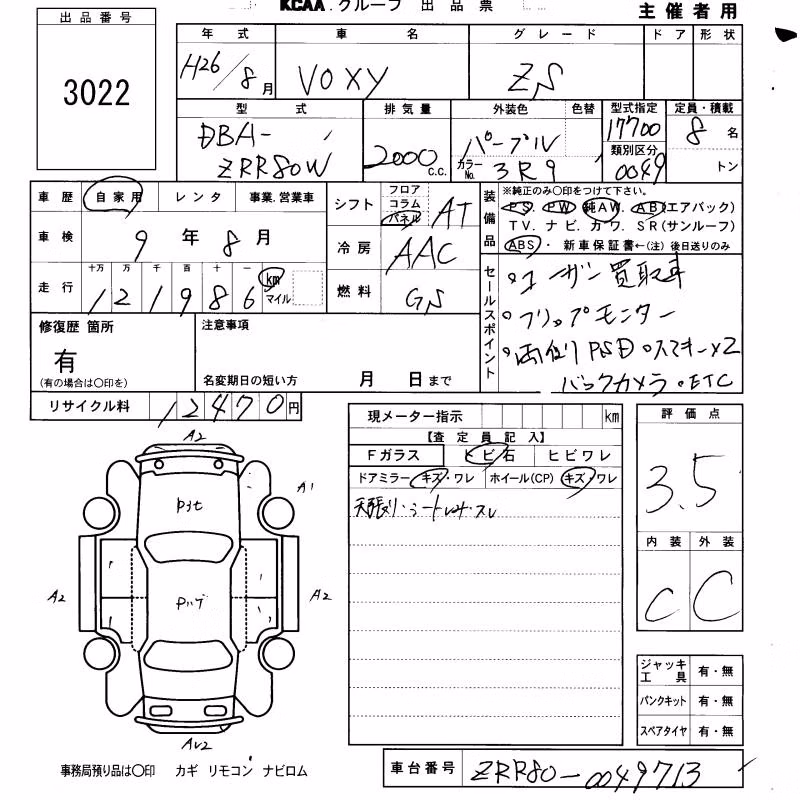 KCAA.グループ 出品票
主催者用
出品番号
3022
年式 車名 グレード ドア 形状
H26/8月 VOXY ZS
型式 排気量 外装色 色替 型式指定 定員・積載
DBA- パープル 17700 8名
ZRR80W 2000c.c. カラーNo. 3R9 類別区分 0049 トン
車歴 自家用 レンタ 事業.営業車
シフト フロア コラム パネル AT
装備品 ※純正のみ○印をつけて下さい。
PS. PW. 純AW. AB(エアバック)
TV. ナビ. カワ. SR(サンルーフ)
ABS・ 新車保証書←(注) 後日送りのみ
車検 9年8月
冷房 AAC
走行 十万 万 千 百 十 一
121986 km マイル
燃料 GS
セールスポイント
・ユーザー買取車
・フリップモニター
・両側PSD・スマキーX2
バックカメラ・ETC
修復歴 箇所
有
(有の場合は○印を)
注意事項
名変期日の短い方 月 日まで
リサイクル料 12470円
現メーター指示 km
【査定員記入】
Fガラス ヒビ石 ヒビワレ
ドアミラー キズ・ワレ ホイール(CP) キズ・ワレ
天張り・シート
評価点
3.5
内装 外装
C C
A2
A1
A2
A2
ジャッキ工具 有・無
パンクキット 有・無
スペアタイヤ 有・無
事務局預り品は○印 カギ リモコン ナビロム
車台番号 ZRR80-0049713